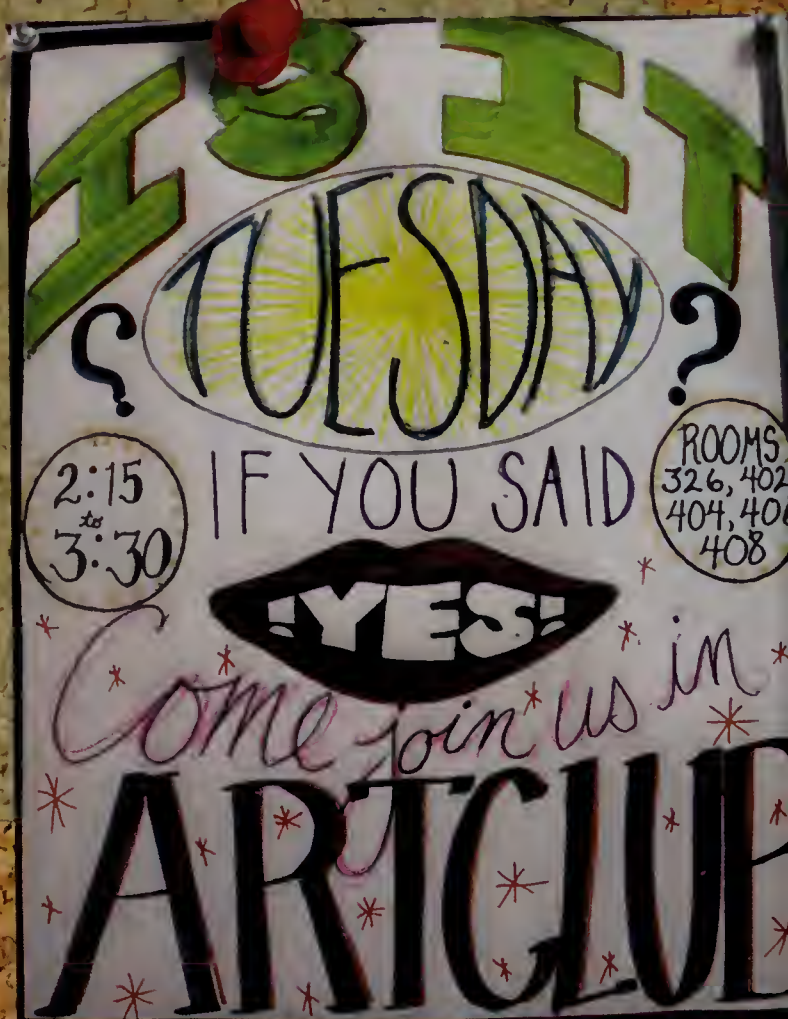 IS IT
? TUESDAY ?
2:15
to
3:30
IF YOU SAID
ROOMS
326, 402
404, 406
408
!YES!
Come join us in
ART CLUB